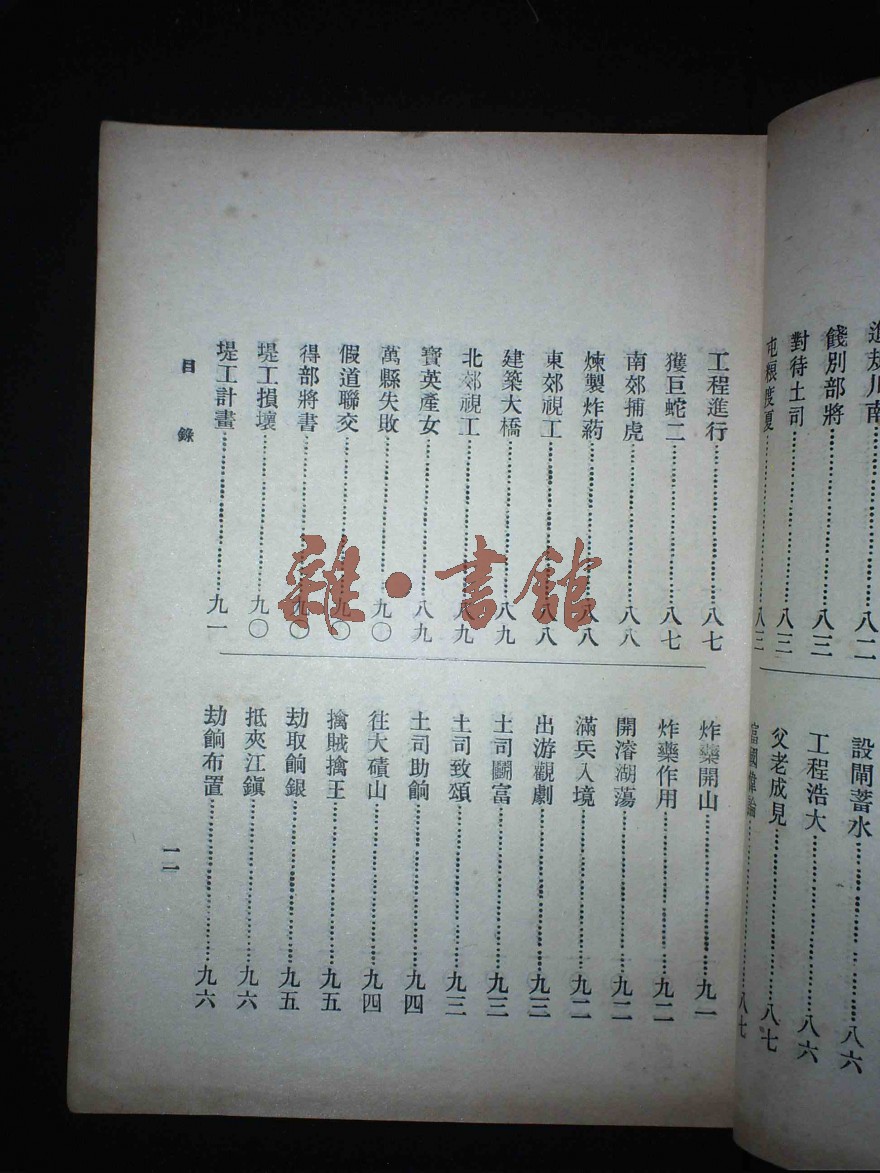 進規川南……八二
餞別部將……八三
對待土司……八三
屯糧度夏……八三
設閘蓄水……八六
工程浩大……八六
父老成見……八七
富國偉論……八七
工程進行……八七
獲巨蛇二……八七
南郊捕虎……八八
煉製炸葯……八八
東郊視工……八八
建築大橋……八九
北郊視工……八九
寶英產女……八九
萬縣失敗……九〇
假道聯交……九〇
得部將書……九〇
堤工損壞……九〇
堤工計畫……九一
炸藥開山……九一
炸藥作用……九二
開濬湖蕩……九二
滿兵入境……九二
出游觀劇……九三
土司鬭富……九三
土司致頌……九三
土司助餉……九四
往大磧山……九四
擒賊擒王……九五
劫取餉銀……九五
抵夾江鎭……九六
劫餉布置……九六
目錄
一一
雜·書館